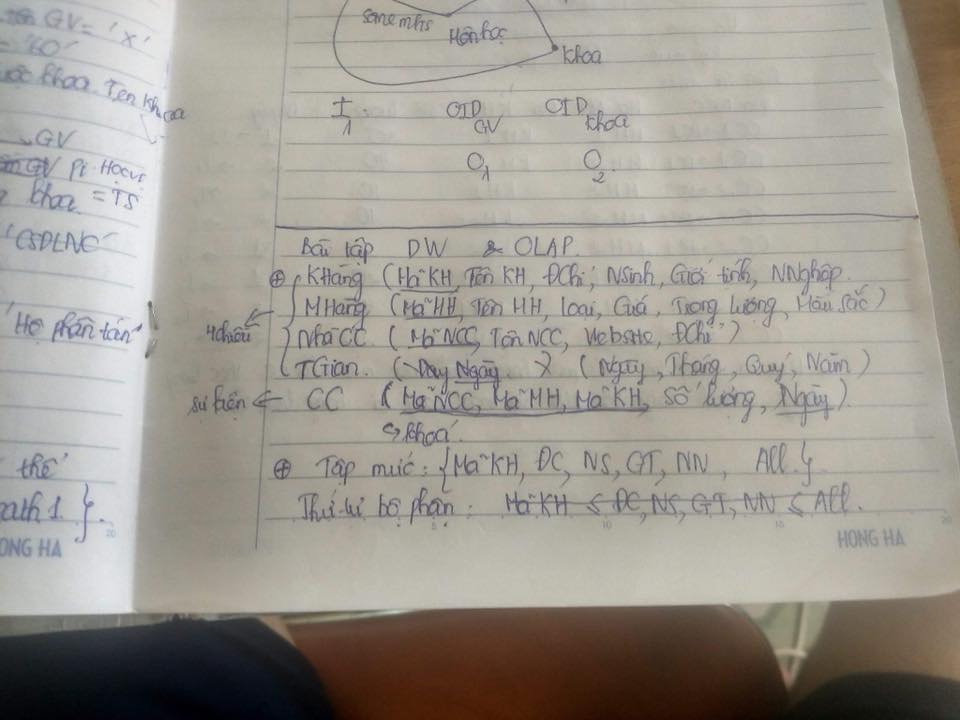 GV = 'X'
= '60'
khoa. Tên khoa
GV
GV Pi. Hocvi
khoa = TS
'CSDLNC'
'Hệ phân tán'
thể
path 1 }.
same mhs
Hến học
khoa
I
1
OID GV
OID khoa
O1
O2
Bài tập DW & OLAP.
⊕ KHàng (Mã KH, Tên KH, ĐChỉ, NSinh, Giới tính, NNghệp.
MHàng (Mã MH, Tên MH, Loại, Giá, Trọng lượng, Màu sắc)
4 chiều
Nhà CC (Mã NCC, Tên NCC, Website, ĐChỉ)
TGian. (Day Ngày) (Ngày, Tháng, Quý, Năm)
sự kiện ← CC (Mã NCC, Mã MH, Mã KH, Số lượng, Ngày)
↪ khoá.
⊕ Tập mức: {Mã KH, ĐC, NS, GT, NN, All.}
Thứ tự bộ phận: Mã KH ≤ ĐC, NS, GT, NN ≤ All.
ONG HA
HONG HA
20
5
10
15
20